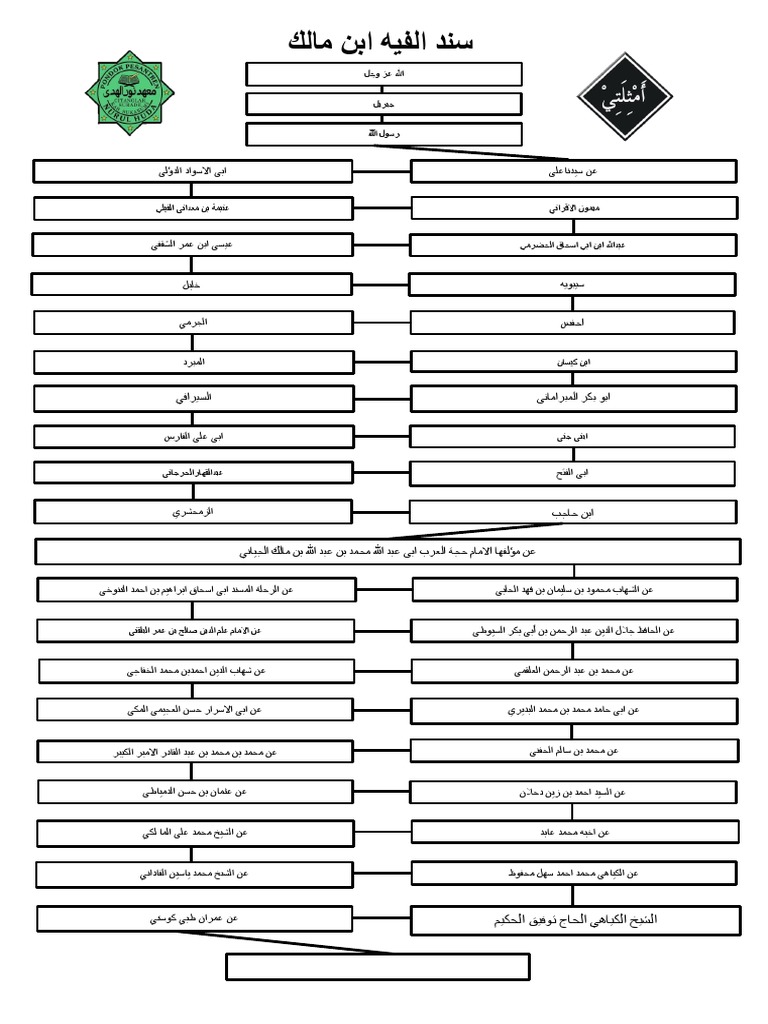 سند الفيه ابن مالك
أَمْثِلَتِيْ
PONDOK PESANTREN
معهد نور الهدى
CITANGLAR
NURUL HUDA
الله عز وجل
جبريل
رسول الله
عن سيدنا على
ابى الاسواد الدؤلى
ميمون الاقرانى
عتيبة بن معدانى الفيلي
عبدالله ابن ابي اسحاق الحضرمي
عيسى ابن عمر الشقفى
سيبويه
خليل
احفس
الجرمي
ابن كيسان
المبرد
ابو بكر المبراماتى
السيرافي
ابنى جنى
ابى على الفارس
ابى الفتح
عبدالقهار الجرجانى
ابن حاجب
الزمحشري
عن مؤلفها الامام حجة العرب ابى عبد الله محمد بن عبد الله بن مالك الجياني
عن الشهاب محمود بن سليمان بن فهد الحلبي
عن الرحلة المسند ابى اسحاق ابراهيم بن احمد التنوخي
عن الحافظ جلال الدين عبد الرحمن بن أبي بكر السيوطى
عن الامام علم الدين صالح بن عمر البلقيني
عن محمد بن عبد الرحمن العلقمي
عن شهاب الدين احمدبن محمد الخفاجي
عن ابى حامد محمد بن محمد البديري
عن ابى الاسرار حسن العجيمى المكى
عن محمد بن سالم الحفنى
عن محمد بن محمد بن عبد القادر الامير الكبير
عن السيد احمد بن زين دحلان
عن عثمان بن حسن الدمياطي
عن اخيه محمد عابد
عن الشيخ محمد على الما لكي
عن الكياهى محمد احمد سهل محفوظ
عن الشيخ محمد ياسين الفادانى
الشيخ الكياهي الحاج توفيق الحكيم
عن عمران طبي كوسفي